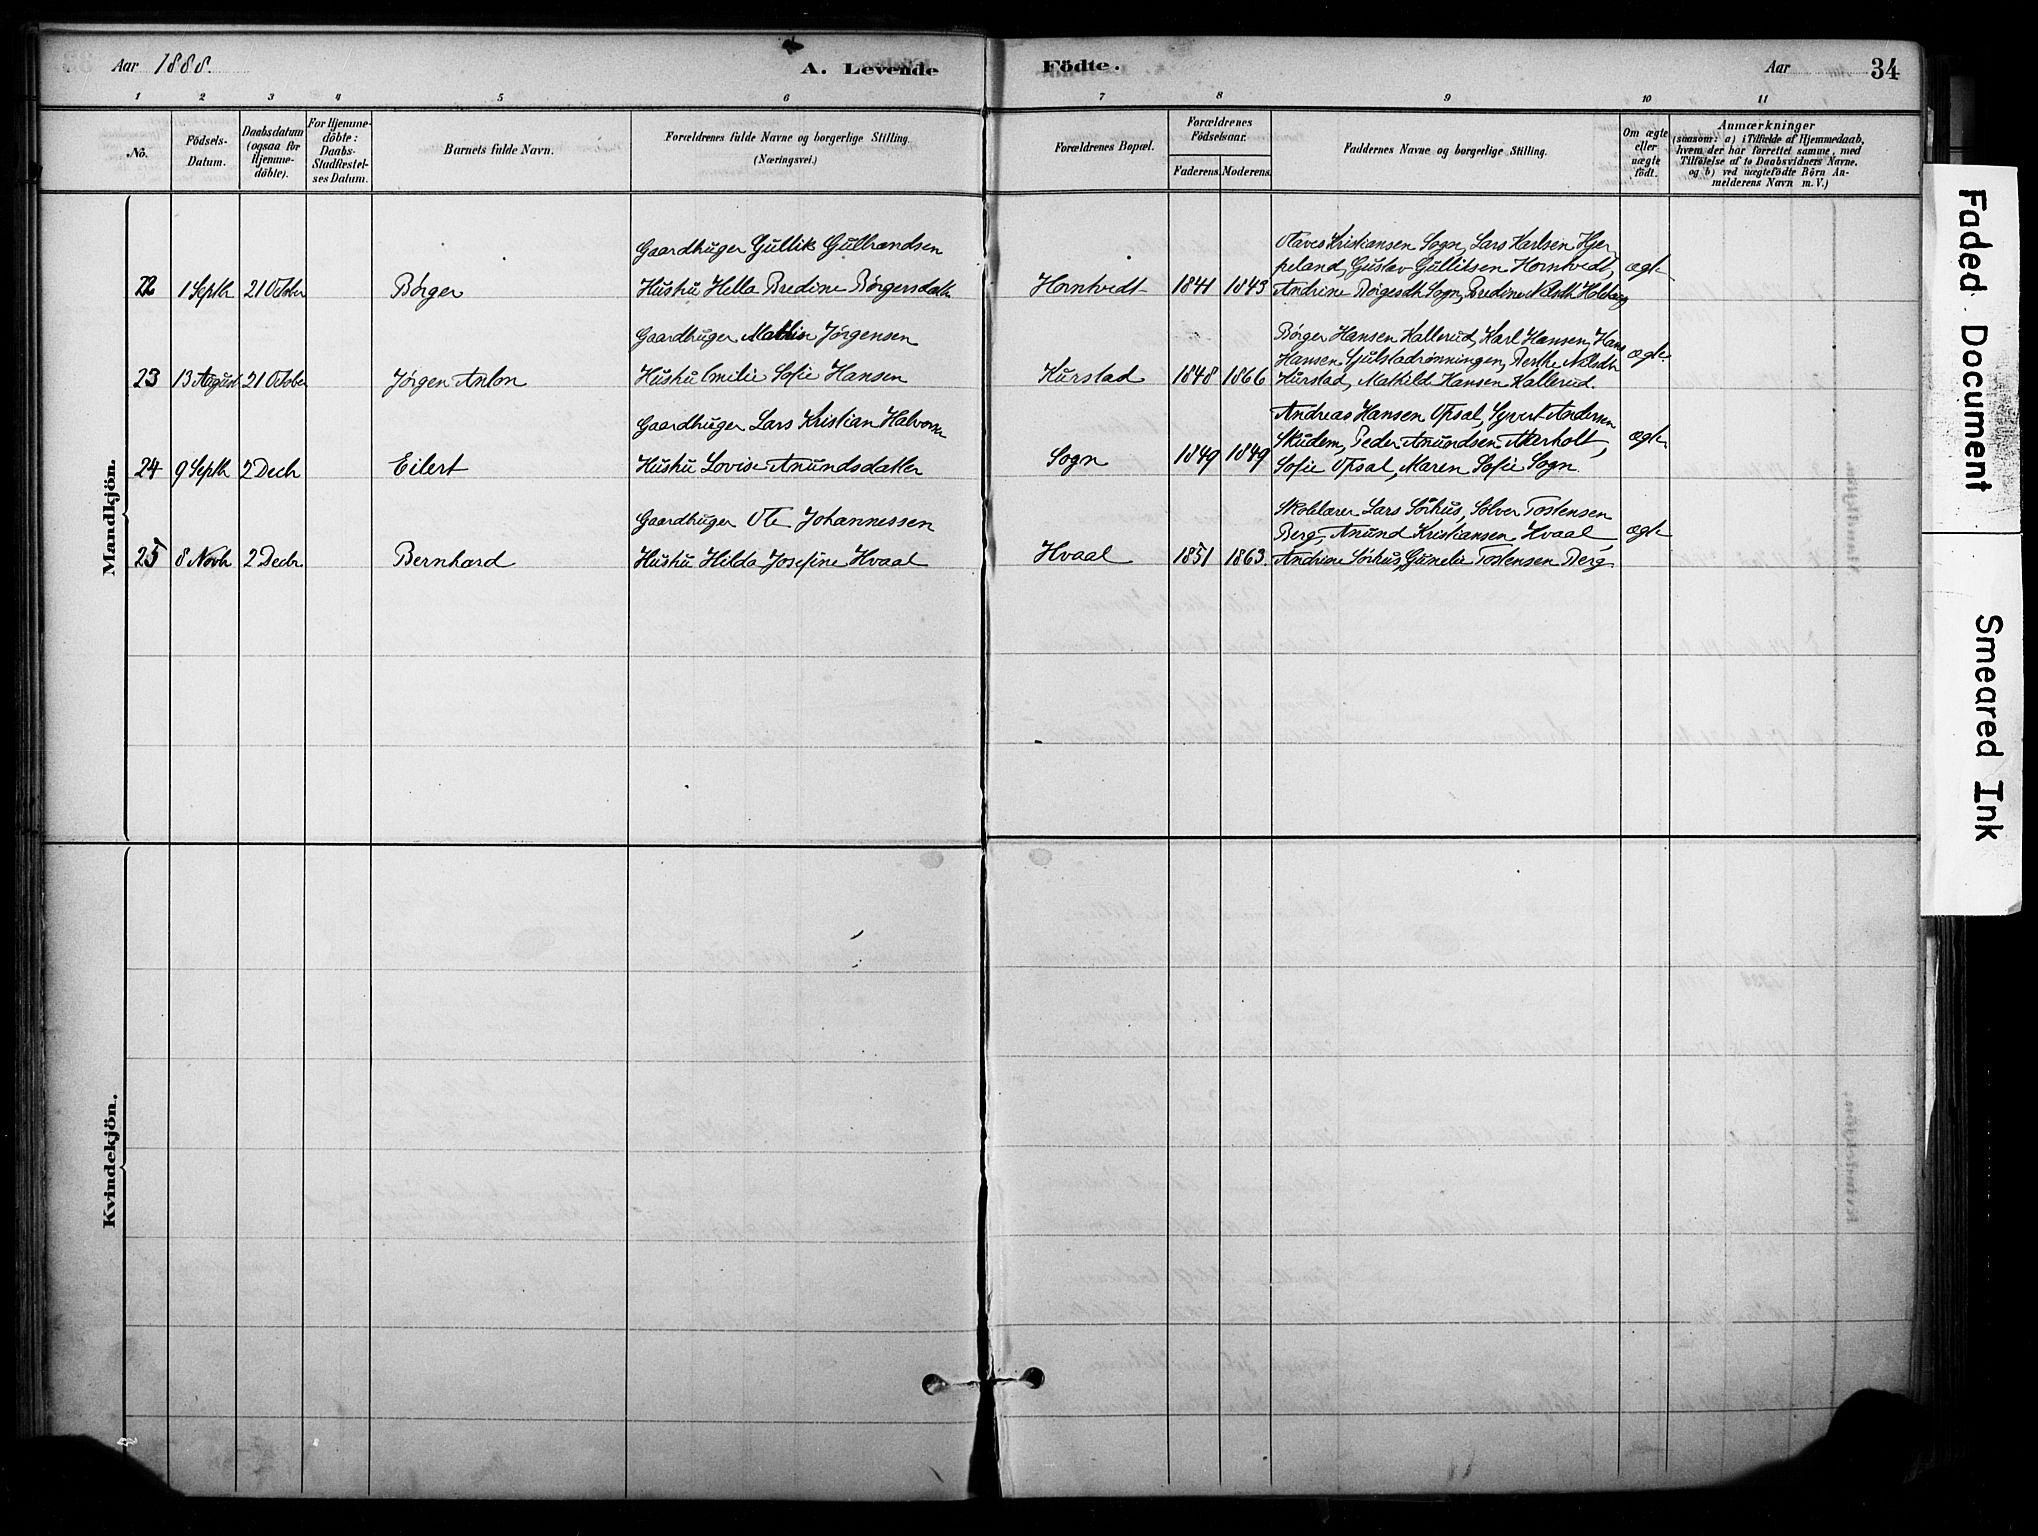 Aar 1888.
A. Levende
Födte.
Aar
34
1 2 3 4 5 6 7 8 9 10 11
No.
Födsels-
Datum.
Daabsdatum
(ogsaa for
Hjemme-
döbte).
For Hjemme-
döbte:
Daabs-
Stadfestel-
ses Datum.
Barnets fulde Navn.
Forældrenes fulde Navne og borgerlige Stilling.
(Næringsvei.)
Forældrenes Bopæl.
Forældrenes
Födselsaar.
Faderens. Moderens.
Faddernes Navne og borgerlige Stilling.
Om ægte
eller
uægte
født.
Anmærkninger
(saasom: a) i Tilfælde af Hjemmedaab,
hvem der har forrettet samme, med
Tilföielse af to Daabsvidners Navne,
og b) ved uægtefödte Börn An-
melderens Navn m. V.)
Mandkjön.
Gaardbruger Gullik Gulbrandsen
22 1 Septb 21 October Børger Hustru Hella Bredine Børgersdatter
Horntvedt 1841 1843
Kristiansen Sogn, Lars Karlsen Hjer
peland, Gustav Gulliksen Horntvedt,
Andrine Børgesdtr Sogn, Bredine Nilsdtr
ægte
Gaardbruger Mathias Jørgensen
23 13 August 21 October Jørgen Anton Hustru Emilie Sofie Hansen
Kurstad 1848 1866
Børger Hansen Kallerud, Karl Hansen, Hans
Hansen Gjulstadrønningen, Berthe Nilsdtr
Kurstad, Mathilde Hansen Kallerud.
ægte
Gaardbruger Lars Kristian Halvorsen
24 9 Septb 2 Decb Eilert Hustru Lovise Amundsdatter
Sogn 1849 1849
Andreas Hansen Opsal, Syvert Andersen
Skudem, Peder Amundsen Aarholt,
Sofie Opsal, Maren Sofie Sogn.
ægte
Gaardbruger Ole Johannessen
25 8 Novb 2 Decbr Bernhard Hustru Hilda Josefine Hvaal
Hvaal 1851 1863.
Skolelærer Lars Sörhus, Solver Tostensen
Berg, Amund Kristiansen Hvaal
Andrine Sörhus, Gunelie Tostensen Berg
ægte
Kvindekjön.
Faded Document
Smeared Ink